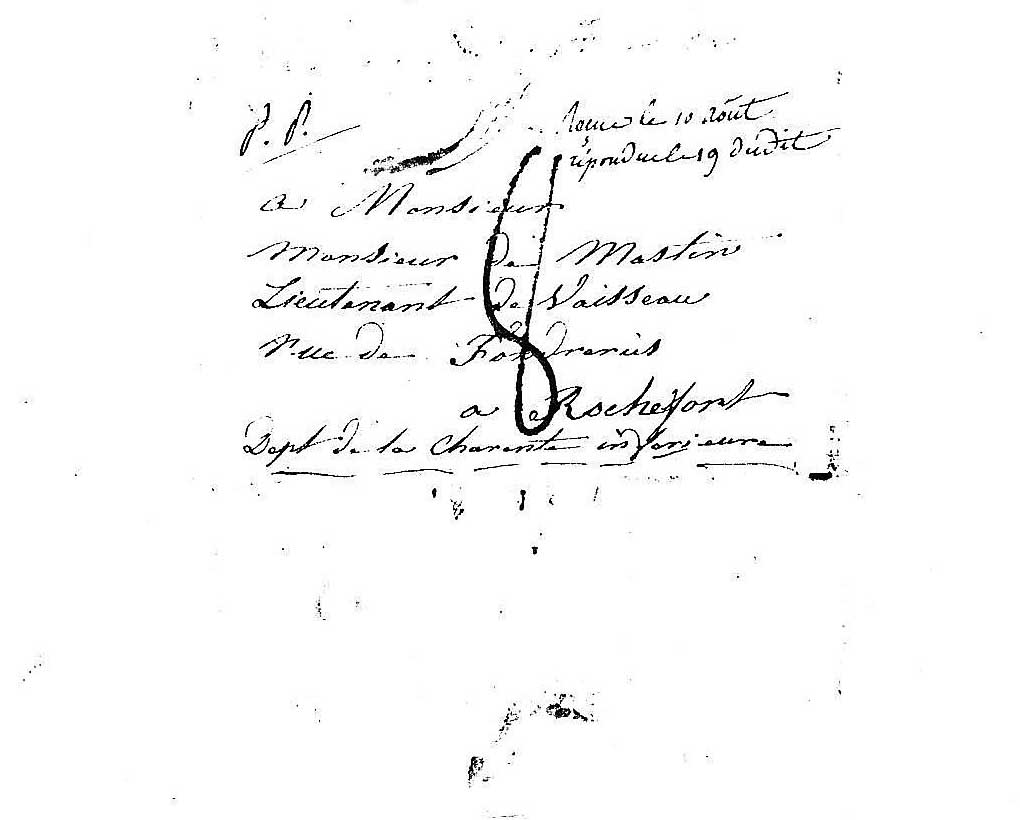 P. P.
Reçue le 10 Août
répondue le 19 dudit
a Monsieur
Monsieur de Mastin
Lieutenant de Vaisseau
Rue de
8
a Rochefort
Dept de la Charente inferieure